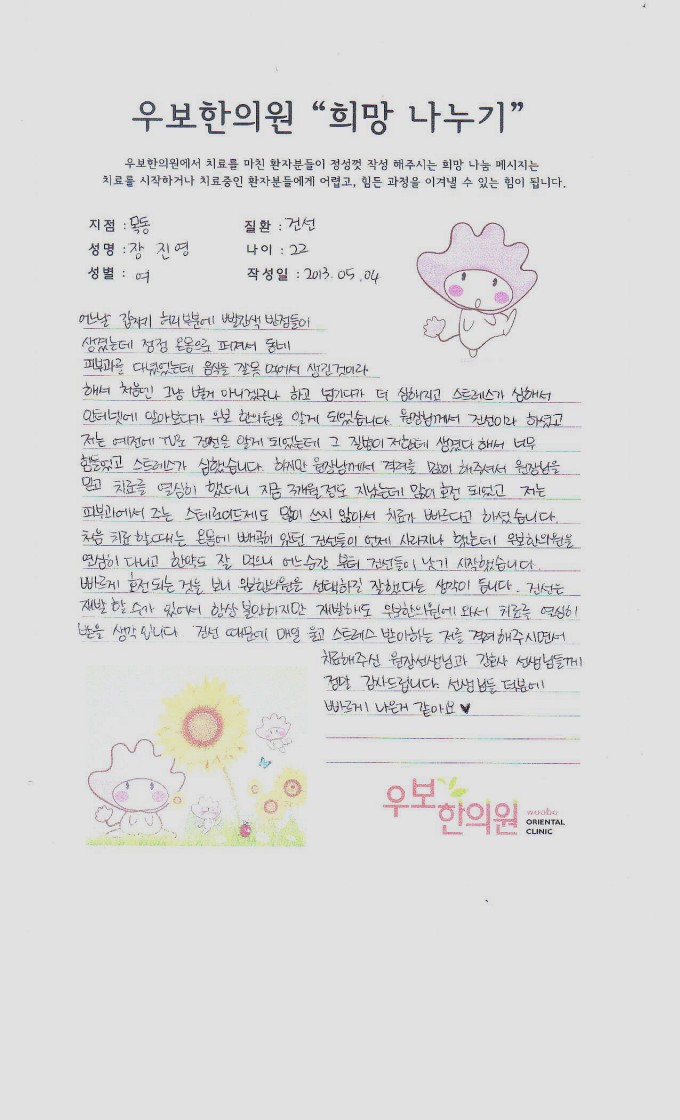 우보한의원 “희망 나누기”
우보한의원에서 치료를 마친 환자분들이 정성껏 작성 해주시는 희망 나눔 메시지는
치료를 시작하거나 치료중인 환자분들에게 어렵고, 힘든 과정을 이겨낼 수 있는 힘이 됩니다.
지점 : 목동 질환 : 건선
성명 : 장 진영 나이 : 22
성별 : 여 작성일 : 2013. 05. 04
어느날 갑자기 허리부분에 빨간색 반점들이
생겼는데 점점 온몸으로 퍼져서 동네
피부과를 다녔었는데 음식을 잘못 먹어서 생긴것이라
해서 처음엔 그냥 별게 아니겠구나 하고 넘기다가 더 심해지고 스트레스가 심해서
인터넷에 알아보다가 우보 한의원을 알게 되었습니다. 원장님께서 건선이라 하셨고
저는 예전에 TV로 건선을 알게 되었는데 그 질병이 저한테 생겼다 해서 너무
힘들었고 스트레스가 심했습니다. 하지만 원장님께서 격려를 많이 해주셔서 원장님을
믿고 치료를 열심히 했더니 지금 3개월 정도 지났는데 많이 호전 되었고 저는
피부과에서 주는 스테로이드제도 많이 쓰지 않아서 치료가 빠르다고 하셨습니다.
처음 치료 할때는 온몸에 빼곡히 있던 건선들이 언제 사라지나 했는데 우보한의원을
열심히 다니고 한약도 잘 먹으니 어느순간 부터 건선들이 낫기 시작했습니다.
빠르게 호전되는 것을 보니 우보한의원을 선택하길 잘했다는 생각이 듭니다. 건선은
재발 할 수가 있어서 항상 불안하지만 재발해도 우보한의원에 와서 치료를 열심히
받을 생각입니다 건선 때문에 매일 울고 스트레스 받아하는 저를 격려해주시면서
치료해주신 원장선생님과 간호사 선생님들께
정말 감사드립니다. 선생님들 덕분에
빠르게 나은거 같아요 ♥
우보한의원
woobo
ORIENTAL
CLINIC